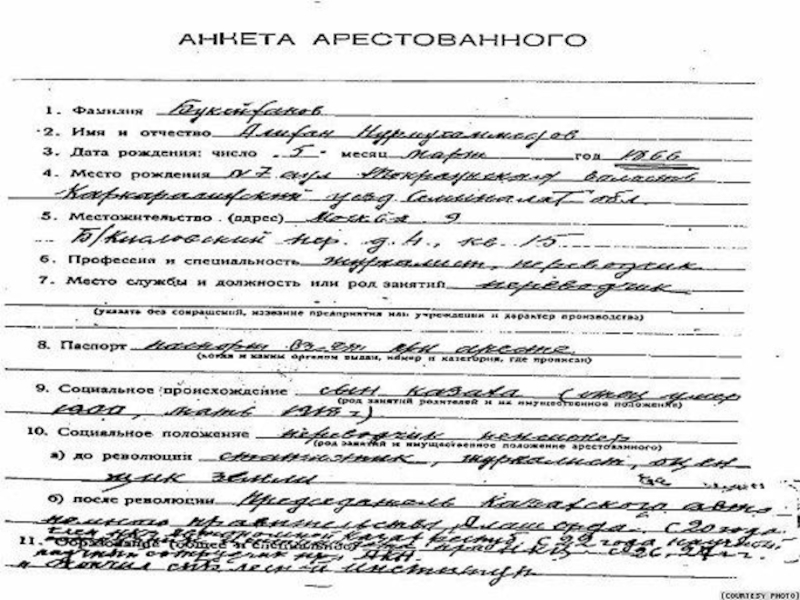 АНКЕТА АРЕСТОВАННОГО
1. Фамилия Букейханов
2. Имя и отчество Алихан Нурмухаммедов
3. Дата рождения: число 5 месяц март год 1866
4. Место рождения №7 аул Токраунской волости
Каркаралинский уезд Семипалат обл.
5. Местожительство (адрес) Москва 9
Б/Кисловский пер. д. 4, кв. 15
6. Профессия и специальность журналист, переводчик
7. Место службы и должность или род занятий переводчик
(указать без сокращений, название предприятия или учреждения и характер производства)
8. Паспорт паспорт вз-ят при аресте
(когда и каким органом выдан, номер и категория, где прописан)
9. Социальное происхождение сын казаха (отец умер
(род занятий родителей и их имущественное положение)
1900, мать 1918 г)
10. Социальное положение переводчик пенсионер
(род занятий и имущественное положение арестованного)
а) до революции статистик, журналист, оцен-
щик земли
б) после революции Председатель Казахского авто-
номного правительства Алаш орда. с 20 года
11. Образование (общее и специальное)
Кончил лесной институт
[COURTESY PHOTO]